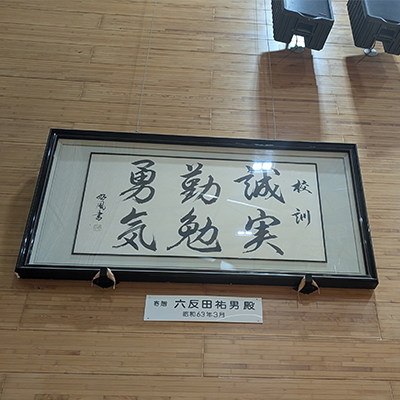 校訓
誠実
勤勉
勇気
寄贈 六反田祐男殿
昭和63年3月